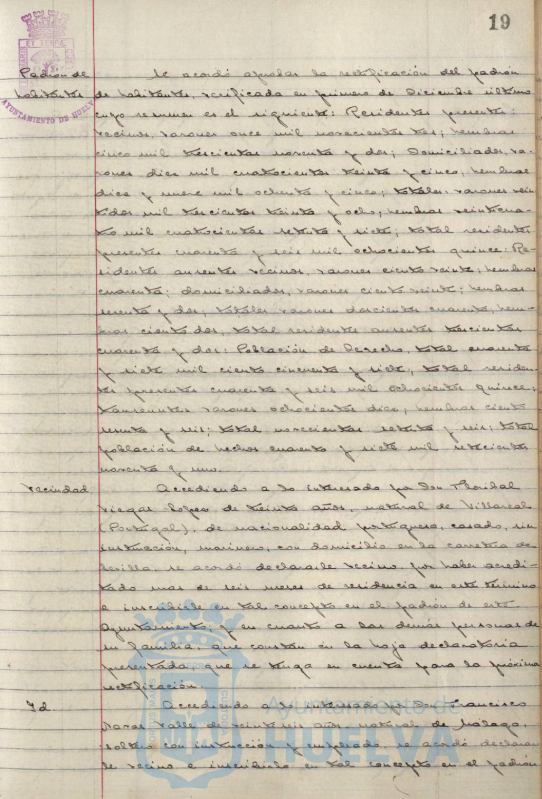 19
Padrón de Se acordó aprobar la rectificación del padrón
habitantes de habitantes, verificada en primero de Diciembre último
AYUNTAMIENTO DE HUELVA
cuyo resumen es el siguiente: Residentes presentes:
vecinos, varones once mil novecientos tres; hembras
cinco mil trescientas noventa y dos; Domiciliados, va-
rones diez mil cuatrocientos treinta y cinco; hembras
diez y nueve mil ochenta y cinco; totales: varones vein
tidos mil trescientos treinta y ocho; hembras veinticua-
tro mil cuatrocientas setenta y siete; total residentes
presentes cuarenta y seis mil ochocientos quince: Re-
sidentes ausentes vecinos, varones ciento veinte; hembras
cuarenta: domiciliados, varones ciento veinte; hembras
sesenta y dos; totales varones doscientos cuarenta, hem-
bras ciento dos, total residentes ausentes trescientos
cuarenta y dos: Población de Derecho, total cuarenta
y siete mil ciento cincuenta y siete, total residen-
tes presentes cuarenta y seis mil ochocientos quince;
transeuntes varones ochocientos diez, hembras ciento
sesenta y seis; total novecientos setenta y seis; total
población de hecho cuarenta y siete mil setecientos
noventa y uno.
Vecindad Accediendo a lo interesado por Don
Viegas Lopez de treinta años, natural de Villareal
(Portugal), de nacionalidad portuguesa, casado, sin
instrucción, marinero, con domicilio en la carretera de
Sevilla, se acordó declararle vecino, por haber acredi-
tado mas de seis meses de residencia en este término
e inscribirle en tal concepto en el padrón de este
Ayuntamiento; y en cuanto a las demás personas de
su familia, que constan en la hoja declaratoria
presentada, que se tenga en cuenta para la próxima
rectificación.
Id Accediendo a lo interesado por Don Francisco
Valle de veintiseis años, natural de Málaga,
soltero con instrucción y empleado, se acordó declarar
le vecino e inscribirlo en tal concepto en el padrón
Ayuntamiento de
HUELVA